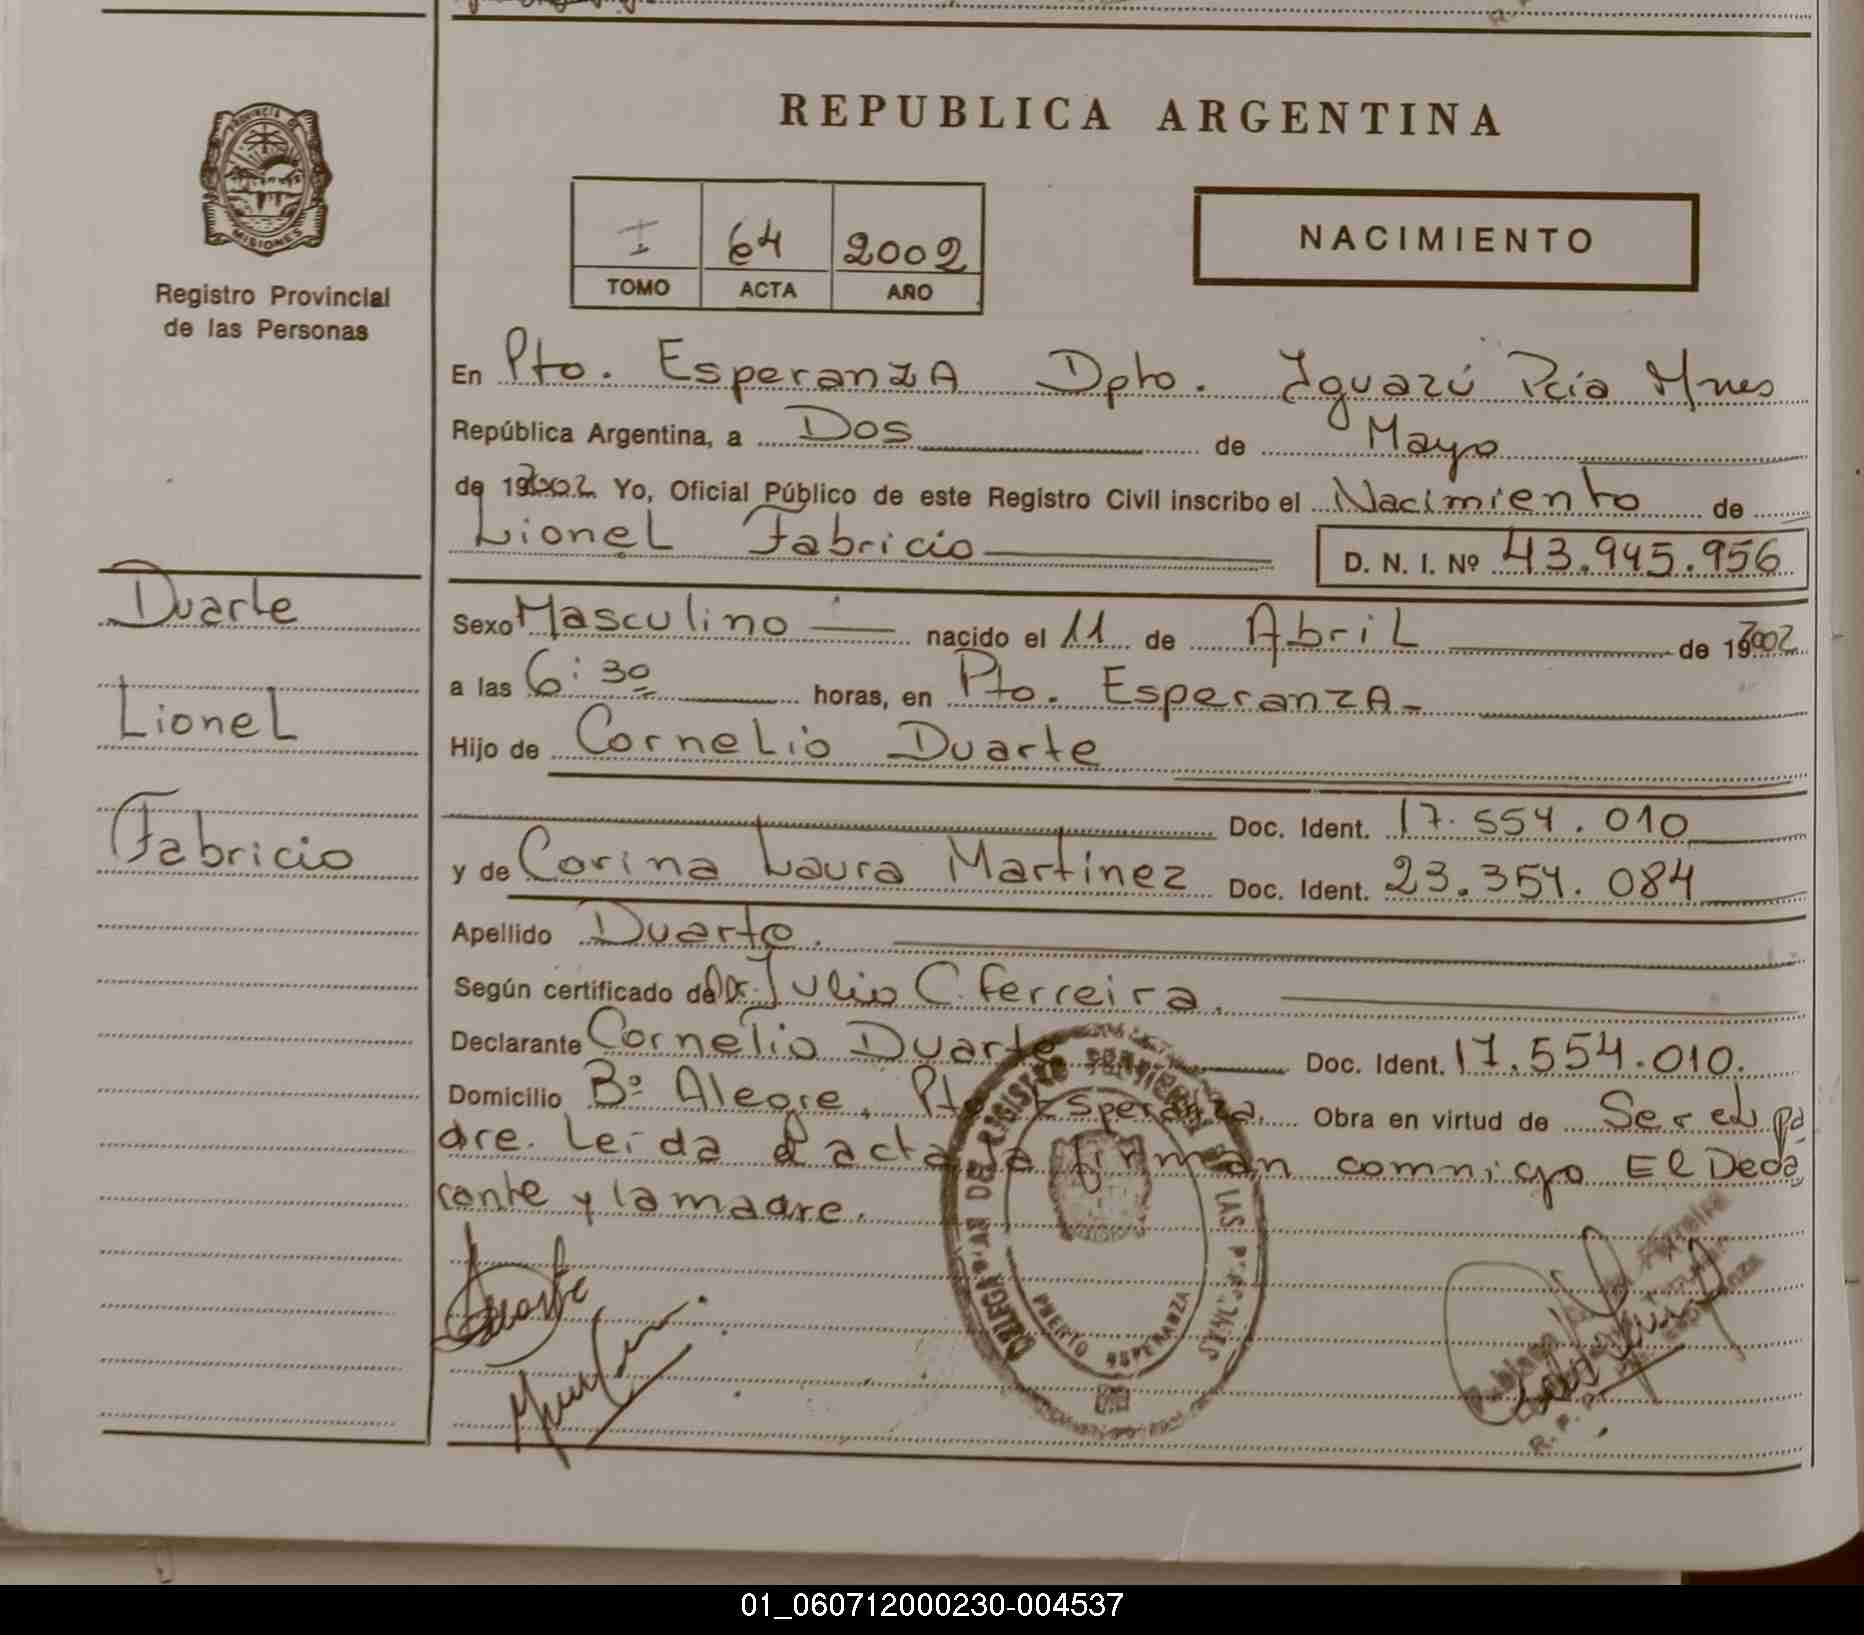 REPUBLICA ARGENTINA
PROVINCIA DE
MISIONES
Registro Provincial
de las Personas
I 64 2002
TOMO ACTA AÑO
NACIMIENTO
En Pto. Esperanza Dpto. Iguazú Pcia Mnes
República Argentina, a Dos de Mayo
de 192002 Yo, Oficial Público de este Registro Civil inscribo el Nacimiento de
Lionel Fabricio D. N. I. Nº 43.945.956
Duarte
Lionel
Fabricio
Sexo Masculino nacido el 11 de Abril de 192002
a las 6:30 horas, en Pto. Esperanza
Hijo de Cornelio Duarte
Doc. Ident. 17.554.010
y de Corina Laura Martinez Doc. Ident. 23.354.084
Apellido Duarte.
Según certificado de Dr. Julio C. Ferreira.
Declarante Cornelio Duarte Doc. Ident. 17.554.010.
Domicilio Bº Alegre, Pto Esperanza. Obra en virtud de Ser el pa
dre. Leída el acta la firman comnigo El Decla
rante y la madre.
Duarte
PUERTO ESPERANZA
01_060712000230-004537